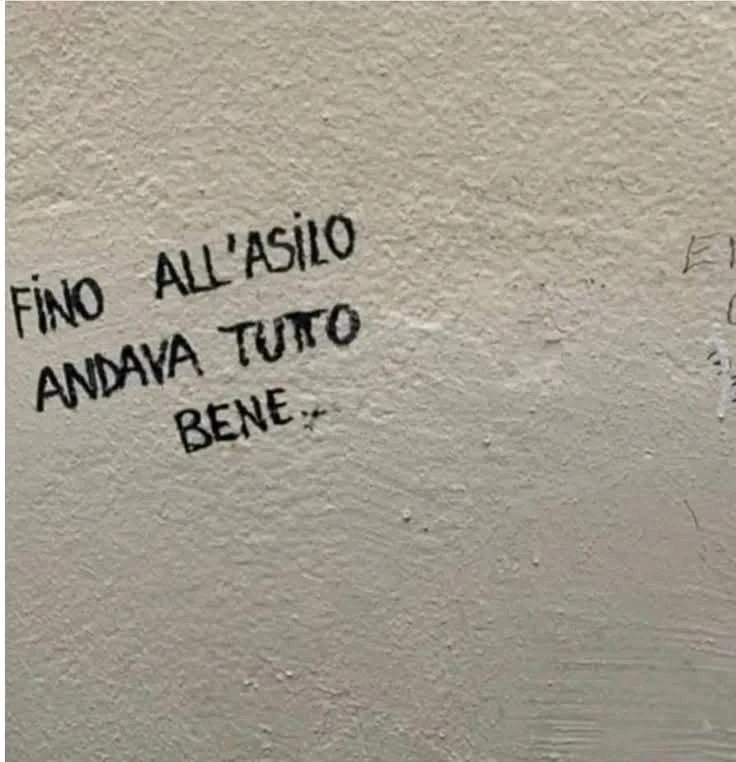 FINO ALL'ASILO
ANDAVA TUTTO
BENE...